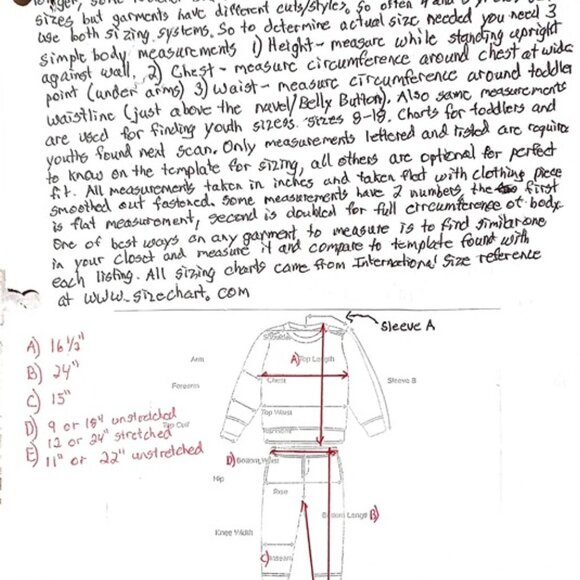 longer, some
sizes but garments have different cuts/styles, so often
use both sizing systems. So to determine actual size needed you need 3
simple body measurements 1) Height - measure while standing upright
against wall, 2) Chest - measure circumference around chest at wide
point (under arms) 3) Waist - measure circumference around toddler
waistline (just above the navel/Belly Button). Also same measurements
are used for finding youth sizes. Sizes 8-18. Charts for toddlers and
youths found next scan. Only measurements lettered and listed are require
to know on the template for sizing, all others are optional for perfect
fit. All measurements taken in inches and taken flat with clothing piece
smoothed out fastened. Some measurements have 2 numbers, the first
is flat measurement, second is doubled for full circumference of body.
One of best ways on any garment to measure is to find similar one
in your closet and measure it and compare to template found with
each listing. All sizing charts came from International Size reference
at www.sizechart.com
Sleeve A
A) 16 1/2"
B) 24"
C) 15"
D) 9 or 18" unstretched
12 or 24" stretched
E) 11" or 22" unstretched
Shoulder
Arm
A) Top Length
Chest
Forearm
Sleeve B
Top Waist
Top Cuff
D) Bottom Waist
Hip
Rise
Bottom Length B)
Knee Width
C) Inseam